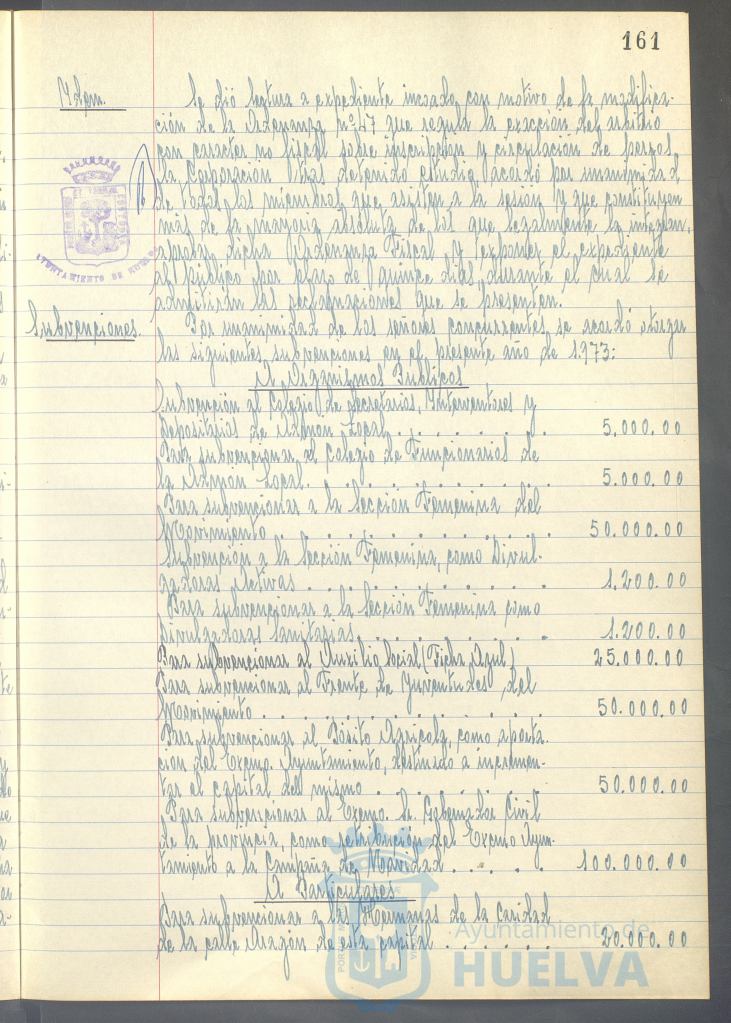 161
Idem.
Se dió lectura a expediente incoado con motivo de la modifica-
ción de la Ordenanza nº 47 que regula la exacción del arbitrio
con caracter no fiscal sobre inscripcion y circulación de perros.
La Corporacion tras detenido estudio, acordó por unanimidad
de todos los miembros que asisten a la sesión y que constituyen
más de la mayoria absoluta de los que legalmente la integran,
aprobar dicha Ordenanza Fiscal y exponer el expediente
al público por plazo de quince dias, durante el cual se
admitirán las reclamaciones que se presenten.
AYUNTAMIENTO DE HUELVA
Subvenciones.
Por unanimidad de los señores concurrentes, se acordó otorgar
las siguientes subvenciones en el presente año de 1.973:
A Organismos Publicos
Subvención al Colegio de Secretarios, Interventores y
Depositarios de Admon Local . . . . . . . . . 5.000.00
Para subvencionar al Colegio de Funcionarios de
la Admon Local . . . . . . . . . . . . 5.000.00
Para subvencionar a la Sección Femenina del
Movimiento . . . . . . . . . . . . . . 50.000.00
Subvención a la Sección Femenina, como Divul-
gadoras Activas . . . . . . . . . . . . 1.200.00
Para subvencionar a la Sección Femenina como
Divulgadoras Sanitarias . . . . . . . . . 1.200.00
Para subvencionar al Auxilio Social (Ficha Azul) 25.000.00
Para subvencionar al Frente de Juventudes del
Movimiento . . . . . . . . . . . . . . 50.000.00
Para subvencionar al Pósito Agricola, como aporta-
cion del Excmo. Ayuntamiento, destinado a incremen-
tar el capital del mismo . . . . . . . . 50.000.00
Para subvencionar al Excmo. Sr. Gobernador Civil
de la provincia, como retribución del Excmo Ayun-
tamiento a la Campaña de Navidad . . . . . 100.000.00
A Particulares
Para subvencionar a las Hermanas de la Caridad
de la calle Aragón de esta capital . . . . . . . 20.000.00
Ayuntamiento de
HUELVA